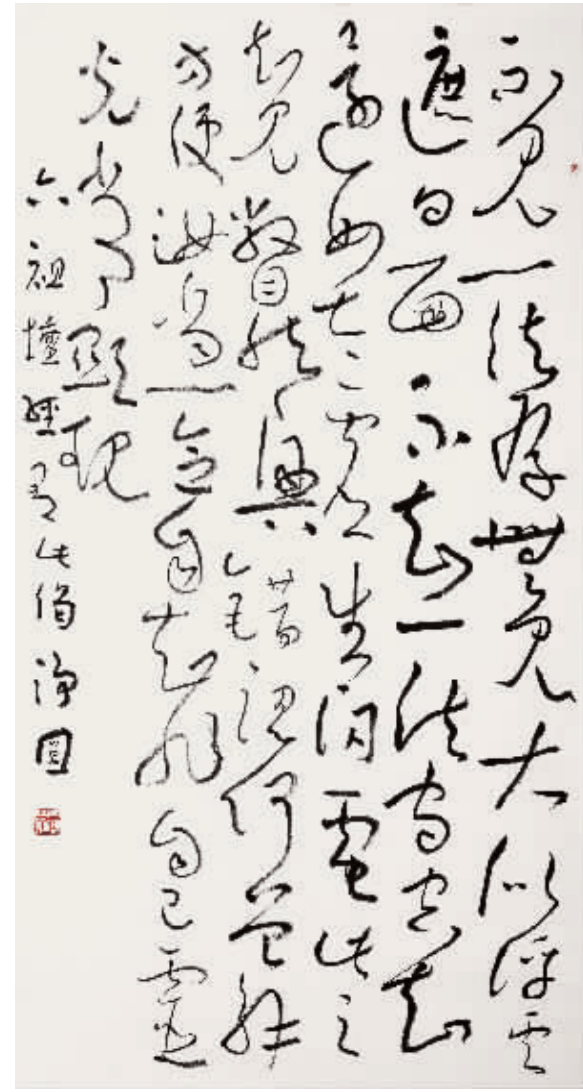 不見一法存無見大似浮云
遮日面不知一法守空知
還如太虛生閃電此之
知見瞥然興錯認何曾解
方便汝當一念自知非自己靈
光常顯現
六祖壇經有此偈淨圓